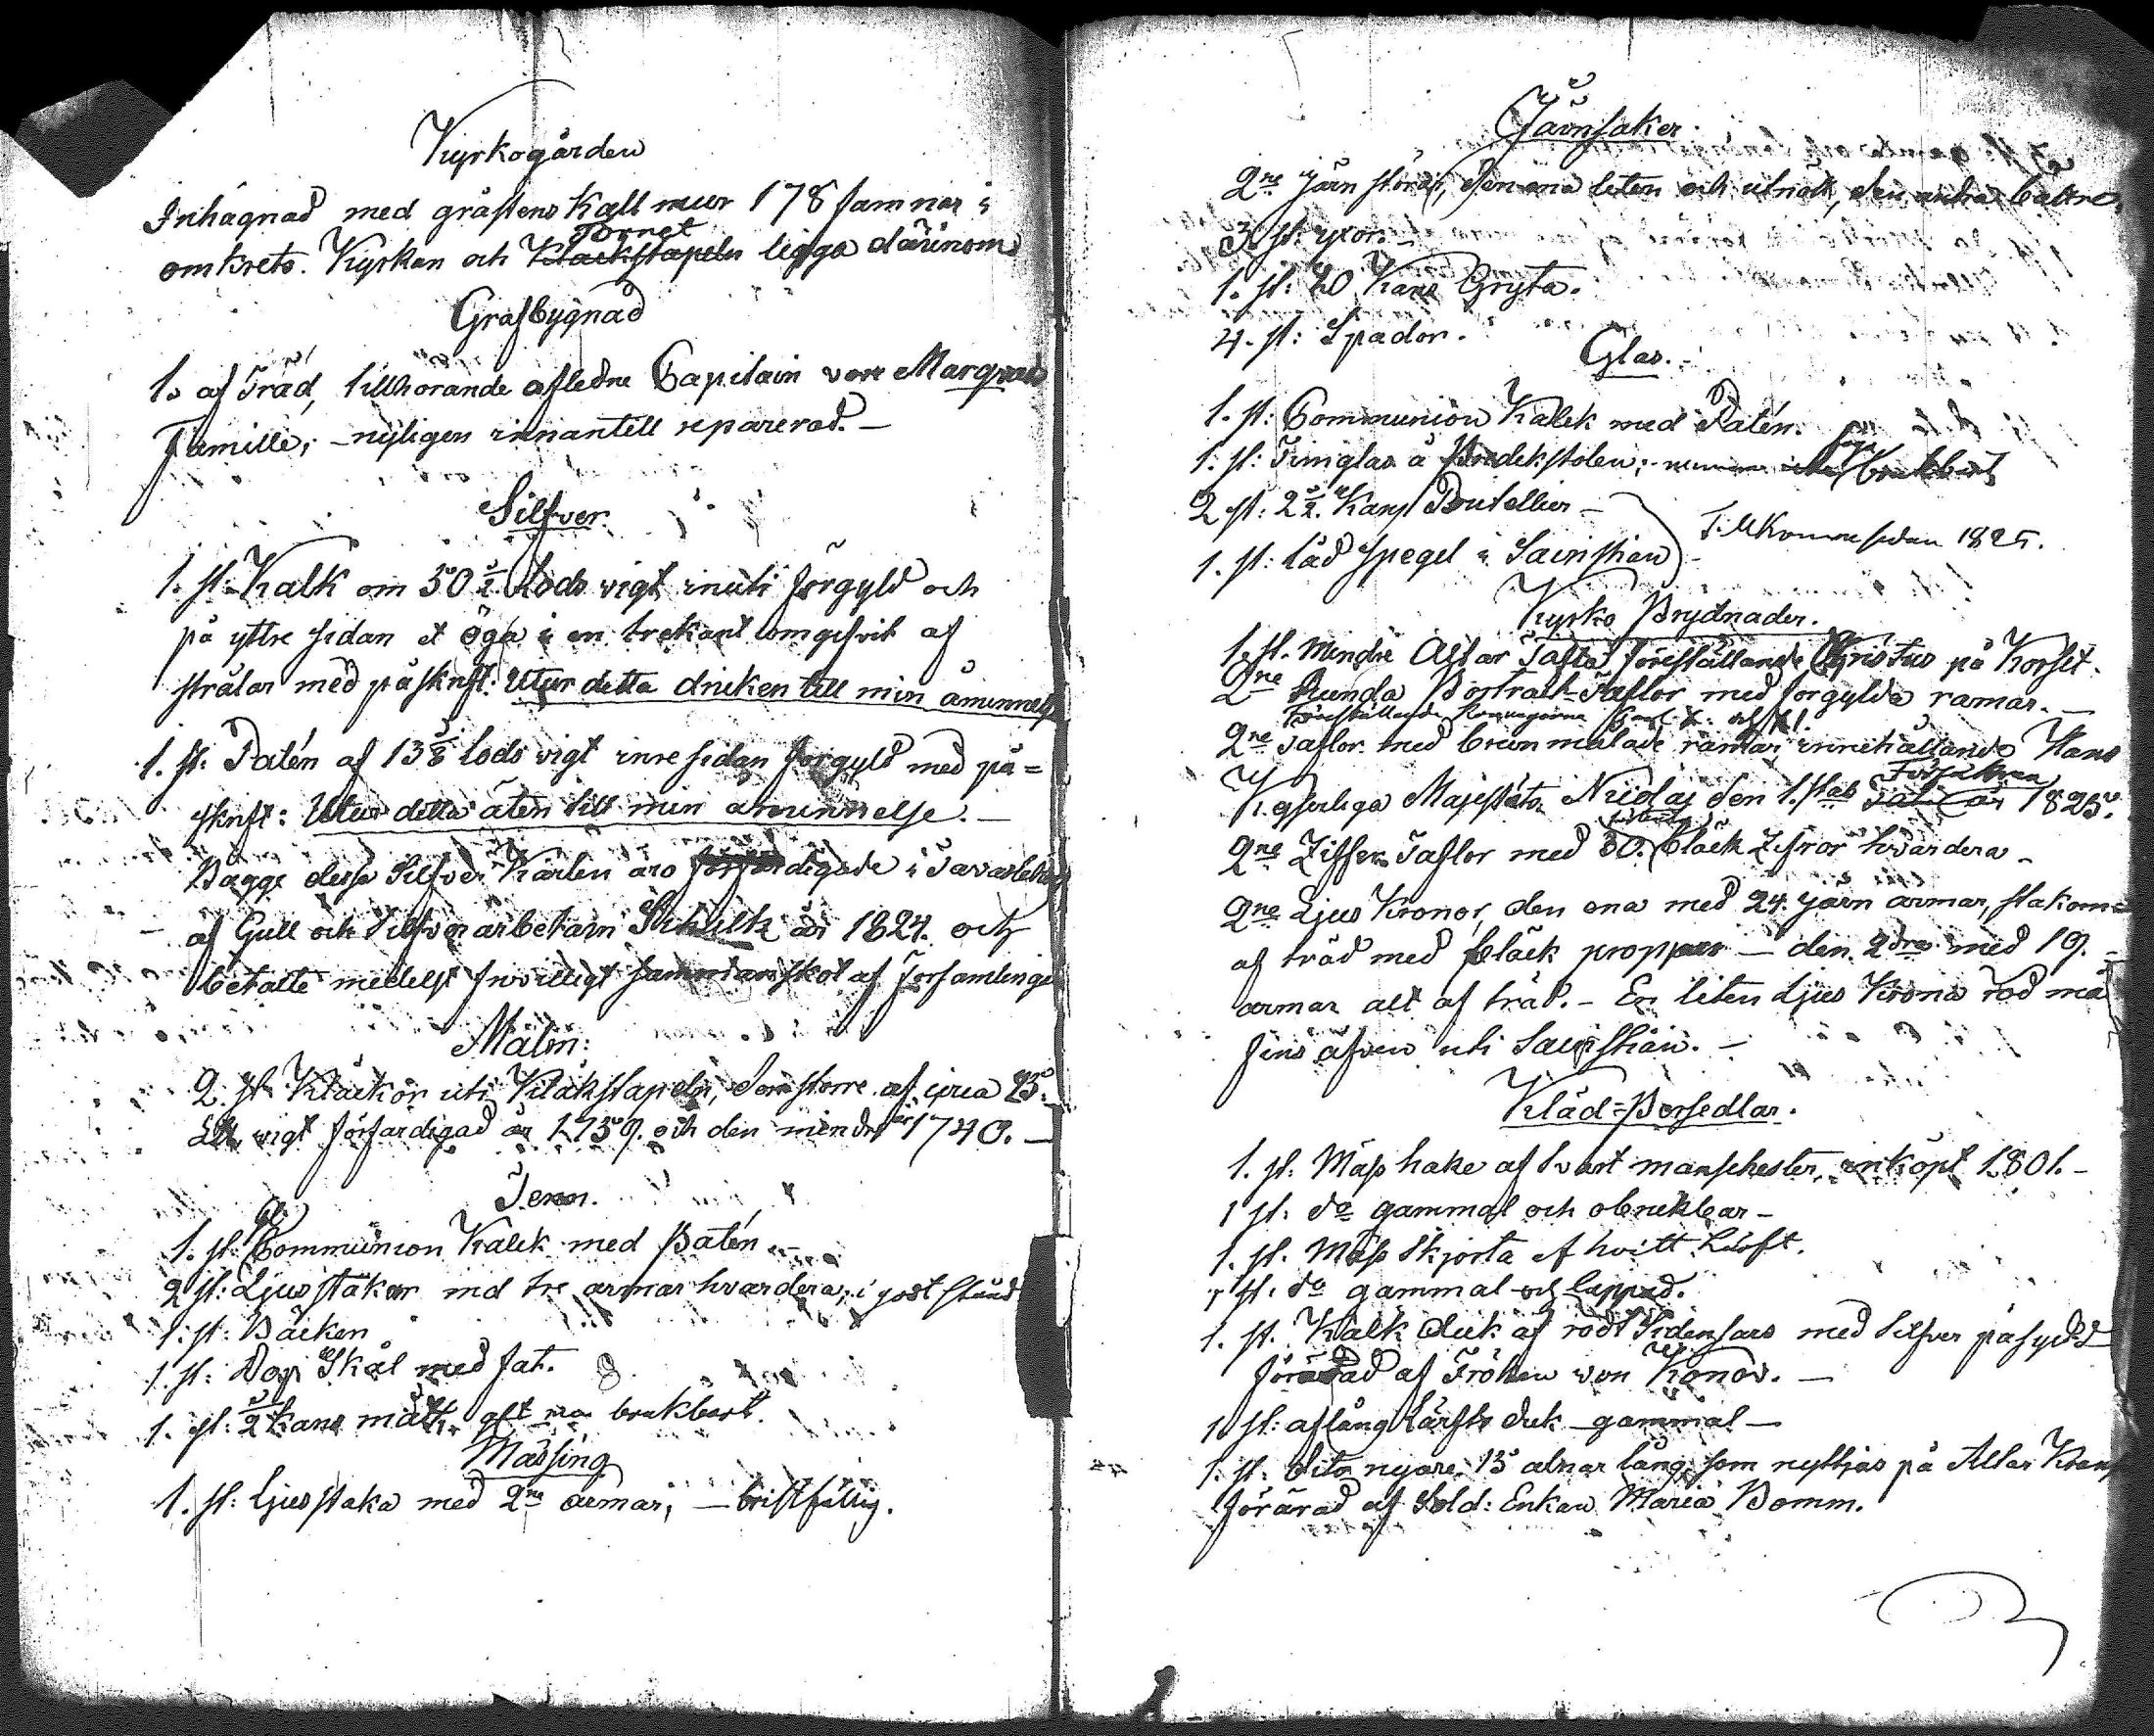 Kyrkogården
Inhägnad med gråstens Kallmur 178 famnar i
omkrets. Kyrkan och Tornet ligga därinom
Grafbygnad
1. af Träd, tillhörande afledne Capitain von Marqvard
Famille; - nyligen innantill reparerad. -
Silfver
1. st: Kalk om 50 1/2 Lods vigt inuti förgyld och
på yttre sidan et öga i en trekant omgifvit af
strålar med påskrift: Utur detta dricken till min åminnelse
1. st: Patén af 13 5/8 Lods vigt inre sidan förgyld med på=
skrift: Utur detta äten till min åminnelse. -
Bägge dessa Silfver Kärlen äro förfärdigade i Tavastehus
af Gull och Silfver arbetarn Schultz år 1824. och
betalte medelst frivilligt sammanskot af Församlingen
Malm:
2. st. Kläckor uti Kläkstapeln, den större af circa 25.
L℔ vigt förfärdigad år 1759. och den mindre år 1740. -
Tenn.
1. st: Communion Kalck med Patén -
2 st: Ljusstakar med tre armar hvardera, i godt stånd
1. st: Bäcken
1. st: Dop Skål med fat.
1. st: 1/2 kans mått, brukbart.
Mässing
1. st: Ljusstaka med 2ne armar; - bristfällig.
Järnsaker.
2ne Järn störar, den ena liten och utnött, den andra bättre.
3 st: yxor. -
1. st: 20 Kans Gryta.
4. st: Spador.
Glas. -
1. st: Communion Kalck med Patén.
1. st: Timglas å Predikstolen; brukbart
2 st: 2 1/2 Kans Boutellier -
1. st: låd Spegel i Sacristian
Tillkomne sedan 1825.
Kyrko Prydnader.
1. st. mindre Altar Tafla föreställande Christus på Korset.
2ne Runda Portrait-Taflor med förgylda ramar. -
Föreställande Konungarne Carl
2ne Taflor med brunmålade ramar innehållande Hans
Kejserliga Majestäts Nicolaj den 1.stas Försäkran år 1825.
2ne Ziffer Taflor med 30. bläck Zifror hvardera -
2ne Ljus Kronor, den ena med 24. järn armar, stakarne
af träd med bläck proppar - den 2dra med 19. -
armar alt af träd. - En liten Ljus Krona röd må
fins äfven uti Sacristian. -
Kläd=Persedlar.
1. st: Mäss hake af svart manchester, inköpt 1801. -
1 st: do gammal och obrukbar -
1. st. Mäss Skjorta af hvitt Lärft.
1 st: do gammal och lappad.
1. st. Kalk Duk af rödt Sidensars med Silfver påsydd
förärad af Fröken von Konov. -
1 st: aflång Lärfts duk - gammal -
1. st: dito nyare, 15 alnar lång, som nyttjas på Altar Krans
förärad af Sold: Enkan Maria Bomm.